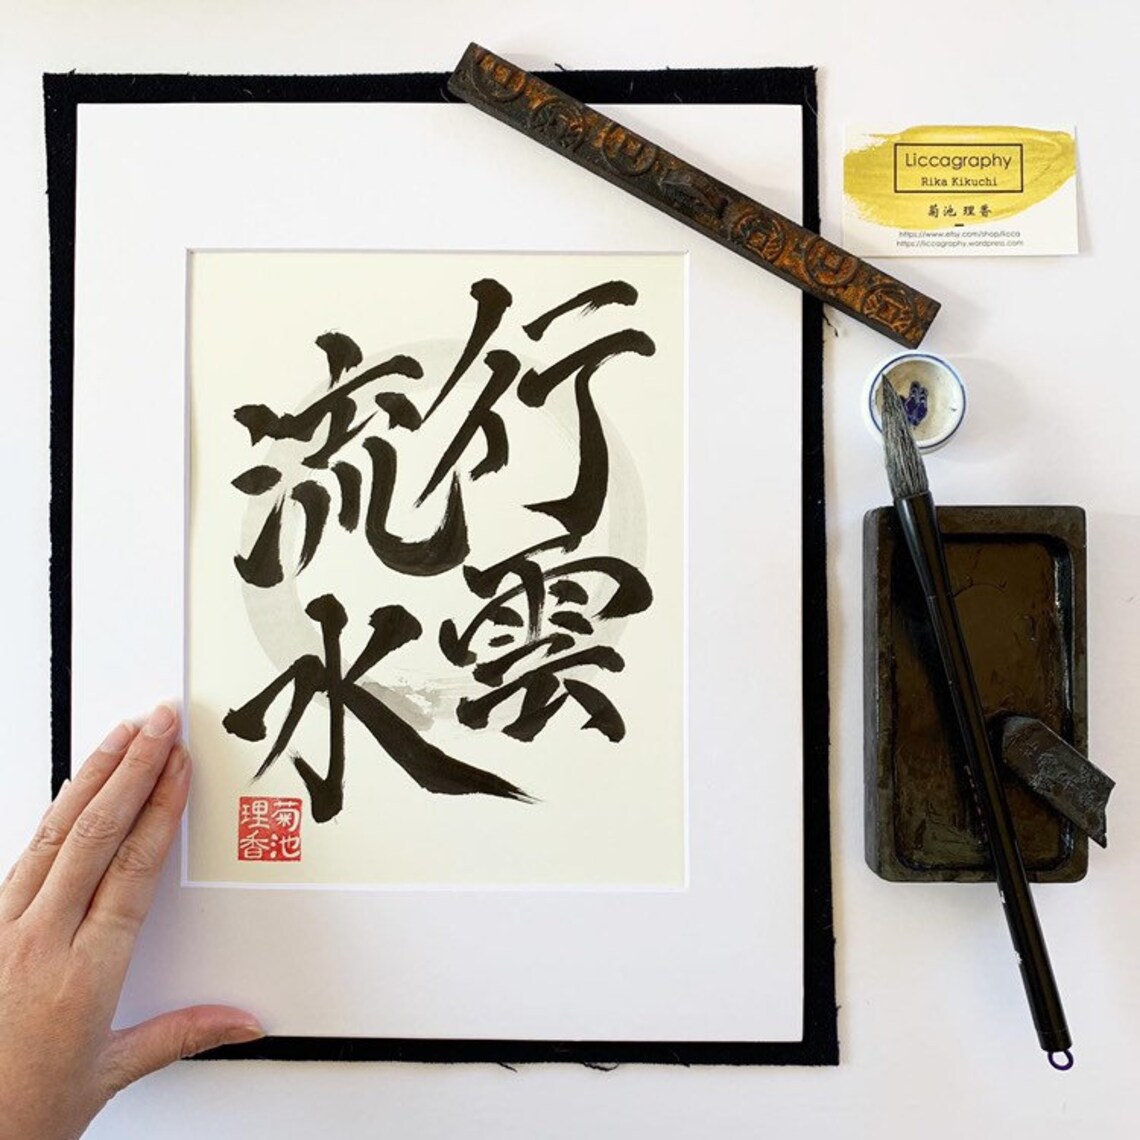 行雲
流水
菊池
理香
Liccagraphy
Rika Kikuchi
菊池 理香
https://www.etsy.com/shop/licca
https://liccagraphy.wordpress.com